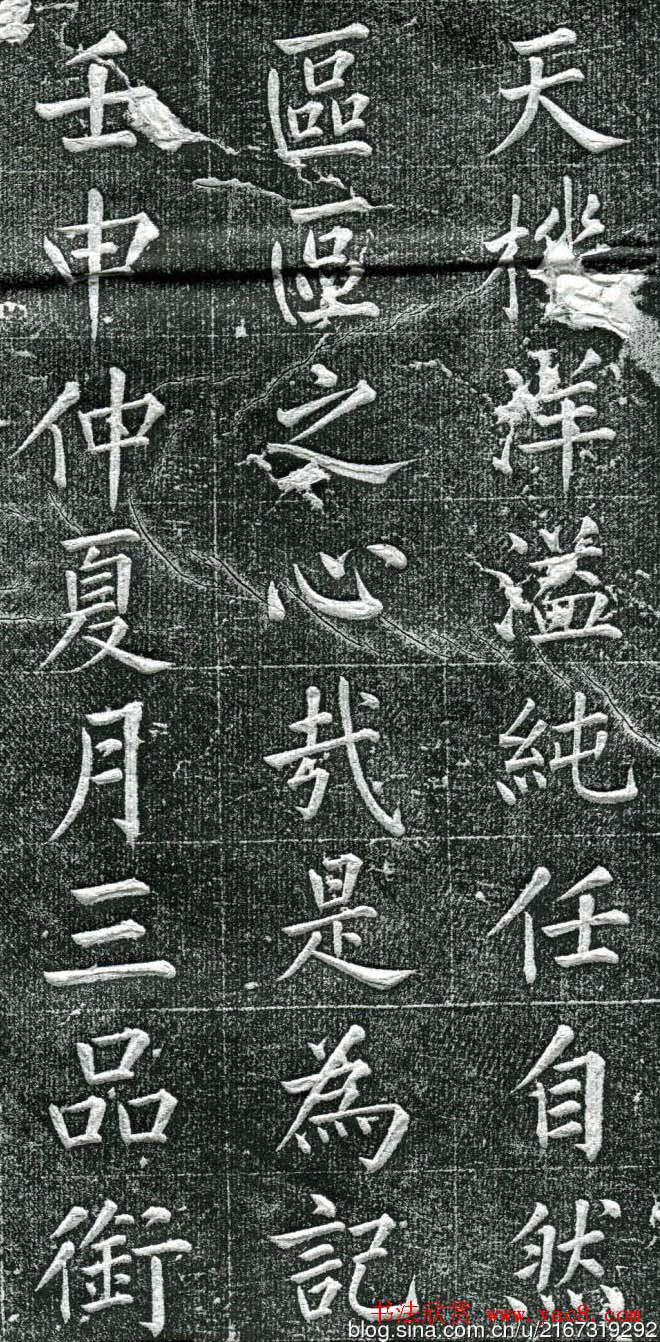 天機洋溢純任自然
區區之心哉是為記
壬申仲夏月三品銜
书法欣赏 www.yac8.com
blog.sina.com.cn/u/2167319292